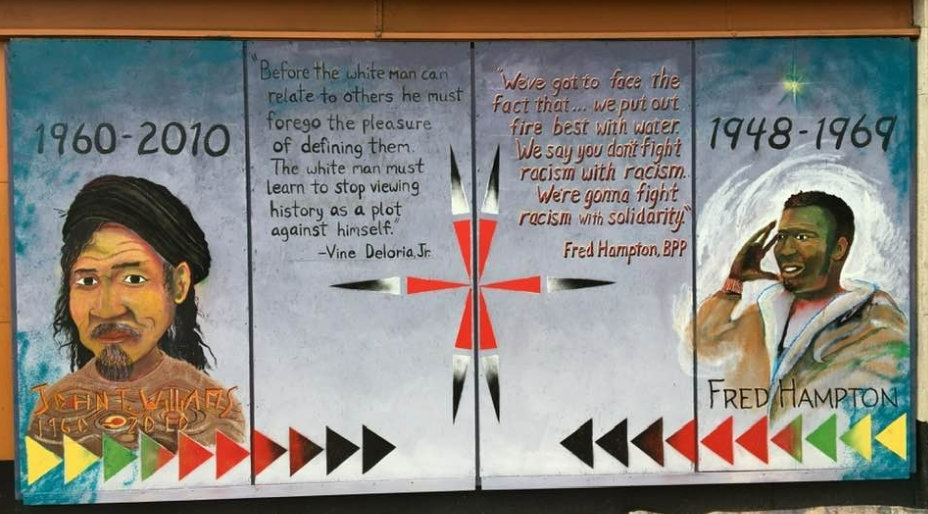 1960-2010
JOHN T. WILLIAMS
1960 2010
"Before the white man can
relate to others he must
forego the pleasure
of defining them.
The white man must
learn to stop viewing
history as a plot
against himself."
-Vine Deloria, Jr.
"We've got to face the
fact that... we put out
fire best with water.
We say you don't fight
racism with racism.
We're gonna fight
racism with solidarity."
Fred Hampton, BPP
1948-1969
FRED HAMPTON